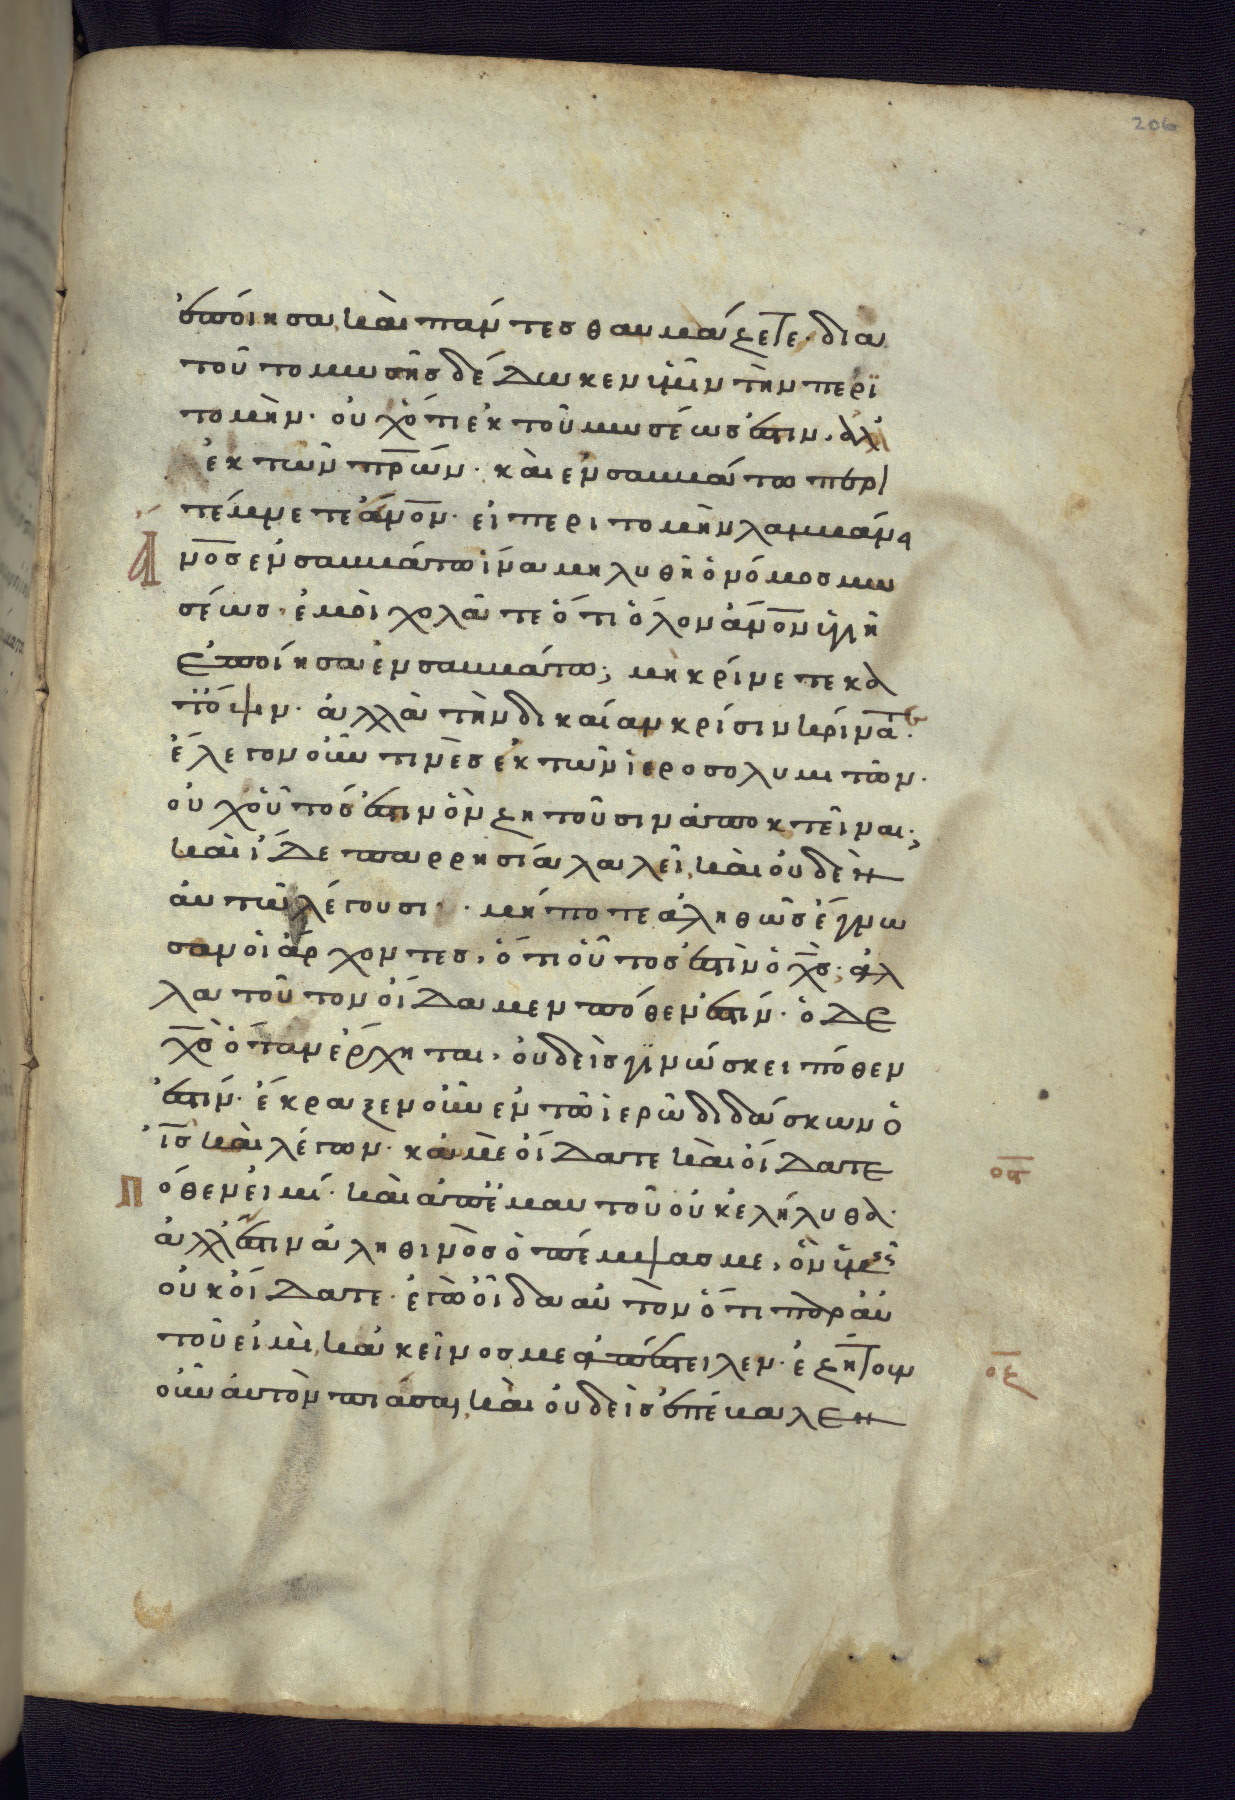 206
ἐποίησα καὶ πάντες θαυμάζετε· δια
τοῦτο μωσῆς δέδωκεν ὑμῖν τὴν περϊ
τομήν· οὐχ ὅτι ἐκ τοῦ μωσέως ἐστιν, ἀλλ'
ἐκ τῶν πρων· καὶ ἐν σαββάτω περι
τέμνετε ἄνον· εἰ περιτομὴν λαμβάνει
ἄνος ἐν σαββάτω ἵνα μὴ λυθῆ ὁ νόμος μω
σέως· ἐμοὶ χολᾶτε ὅτι ὅλον ἄνον ὑγιῆ
ἐποίησα ἐν σαββάτω; μὴ κρίνετε κα
τ' ὄψιν· ἀλλὰ τὴν δικαίαν κρίσιν κρίνατε·
ἔλεγον οὖν τινὲς ἐκ τῶν ἱεροσολυμιτῶν·
οὐχ οὗτός ἐστιν ὃν ζητοῦσιν ἀποκτεῖναι;
καὶ ἴδε παρρησία λαλεῖ, καὶ οὐδὲν
αὐτῶ λέγουσι· μήποτε ἀληθῶς ἔγνω
σαν οἱ ἄρχοντες, ὅτι οὗτος ἐστὶν ὁ χς; ἀλ
λὰ τοῦτον οἴδαμεν πόθεν ἐστίν· ὁ δε
χς ὅταν ἔρχηται, οὐδεὶς γινώσκει πόθεν
ἐστίν· ἔκραξεν οὖν ἐν τῶ ἱερῶ διδάσκων ὁ
ις καὶ λέγων· κἀμὲ οἴδατε καὶ οἴδατε
πόθεν εἰμί· καὶ ἀπ' ἐμαυτοῦ οὐκ ἐλήλυθα·
οα
ἀλλ' ἔστιν ἀληθινὸς ὁ πέμψας με, ὃν ὑμεῖς
οὐκ οἴδατε· ἐγὼ οἶδα αὐτὸν ὅτι παρ' αὐ
τοῦ εἰμὶ, κἀκεῖνος με ἀπέστειλεν· ἐζήτουν
οζ
οὖν αὐτὸν πιάσαι, καὶ οὐδεὶς ἐπέβαλεν